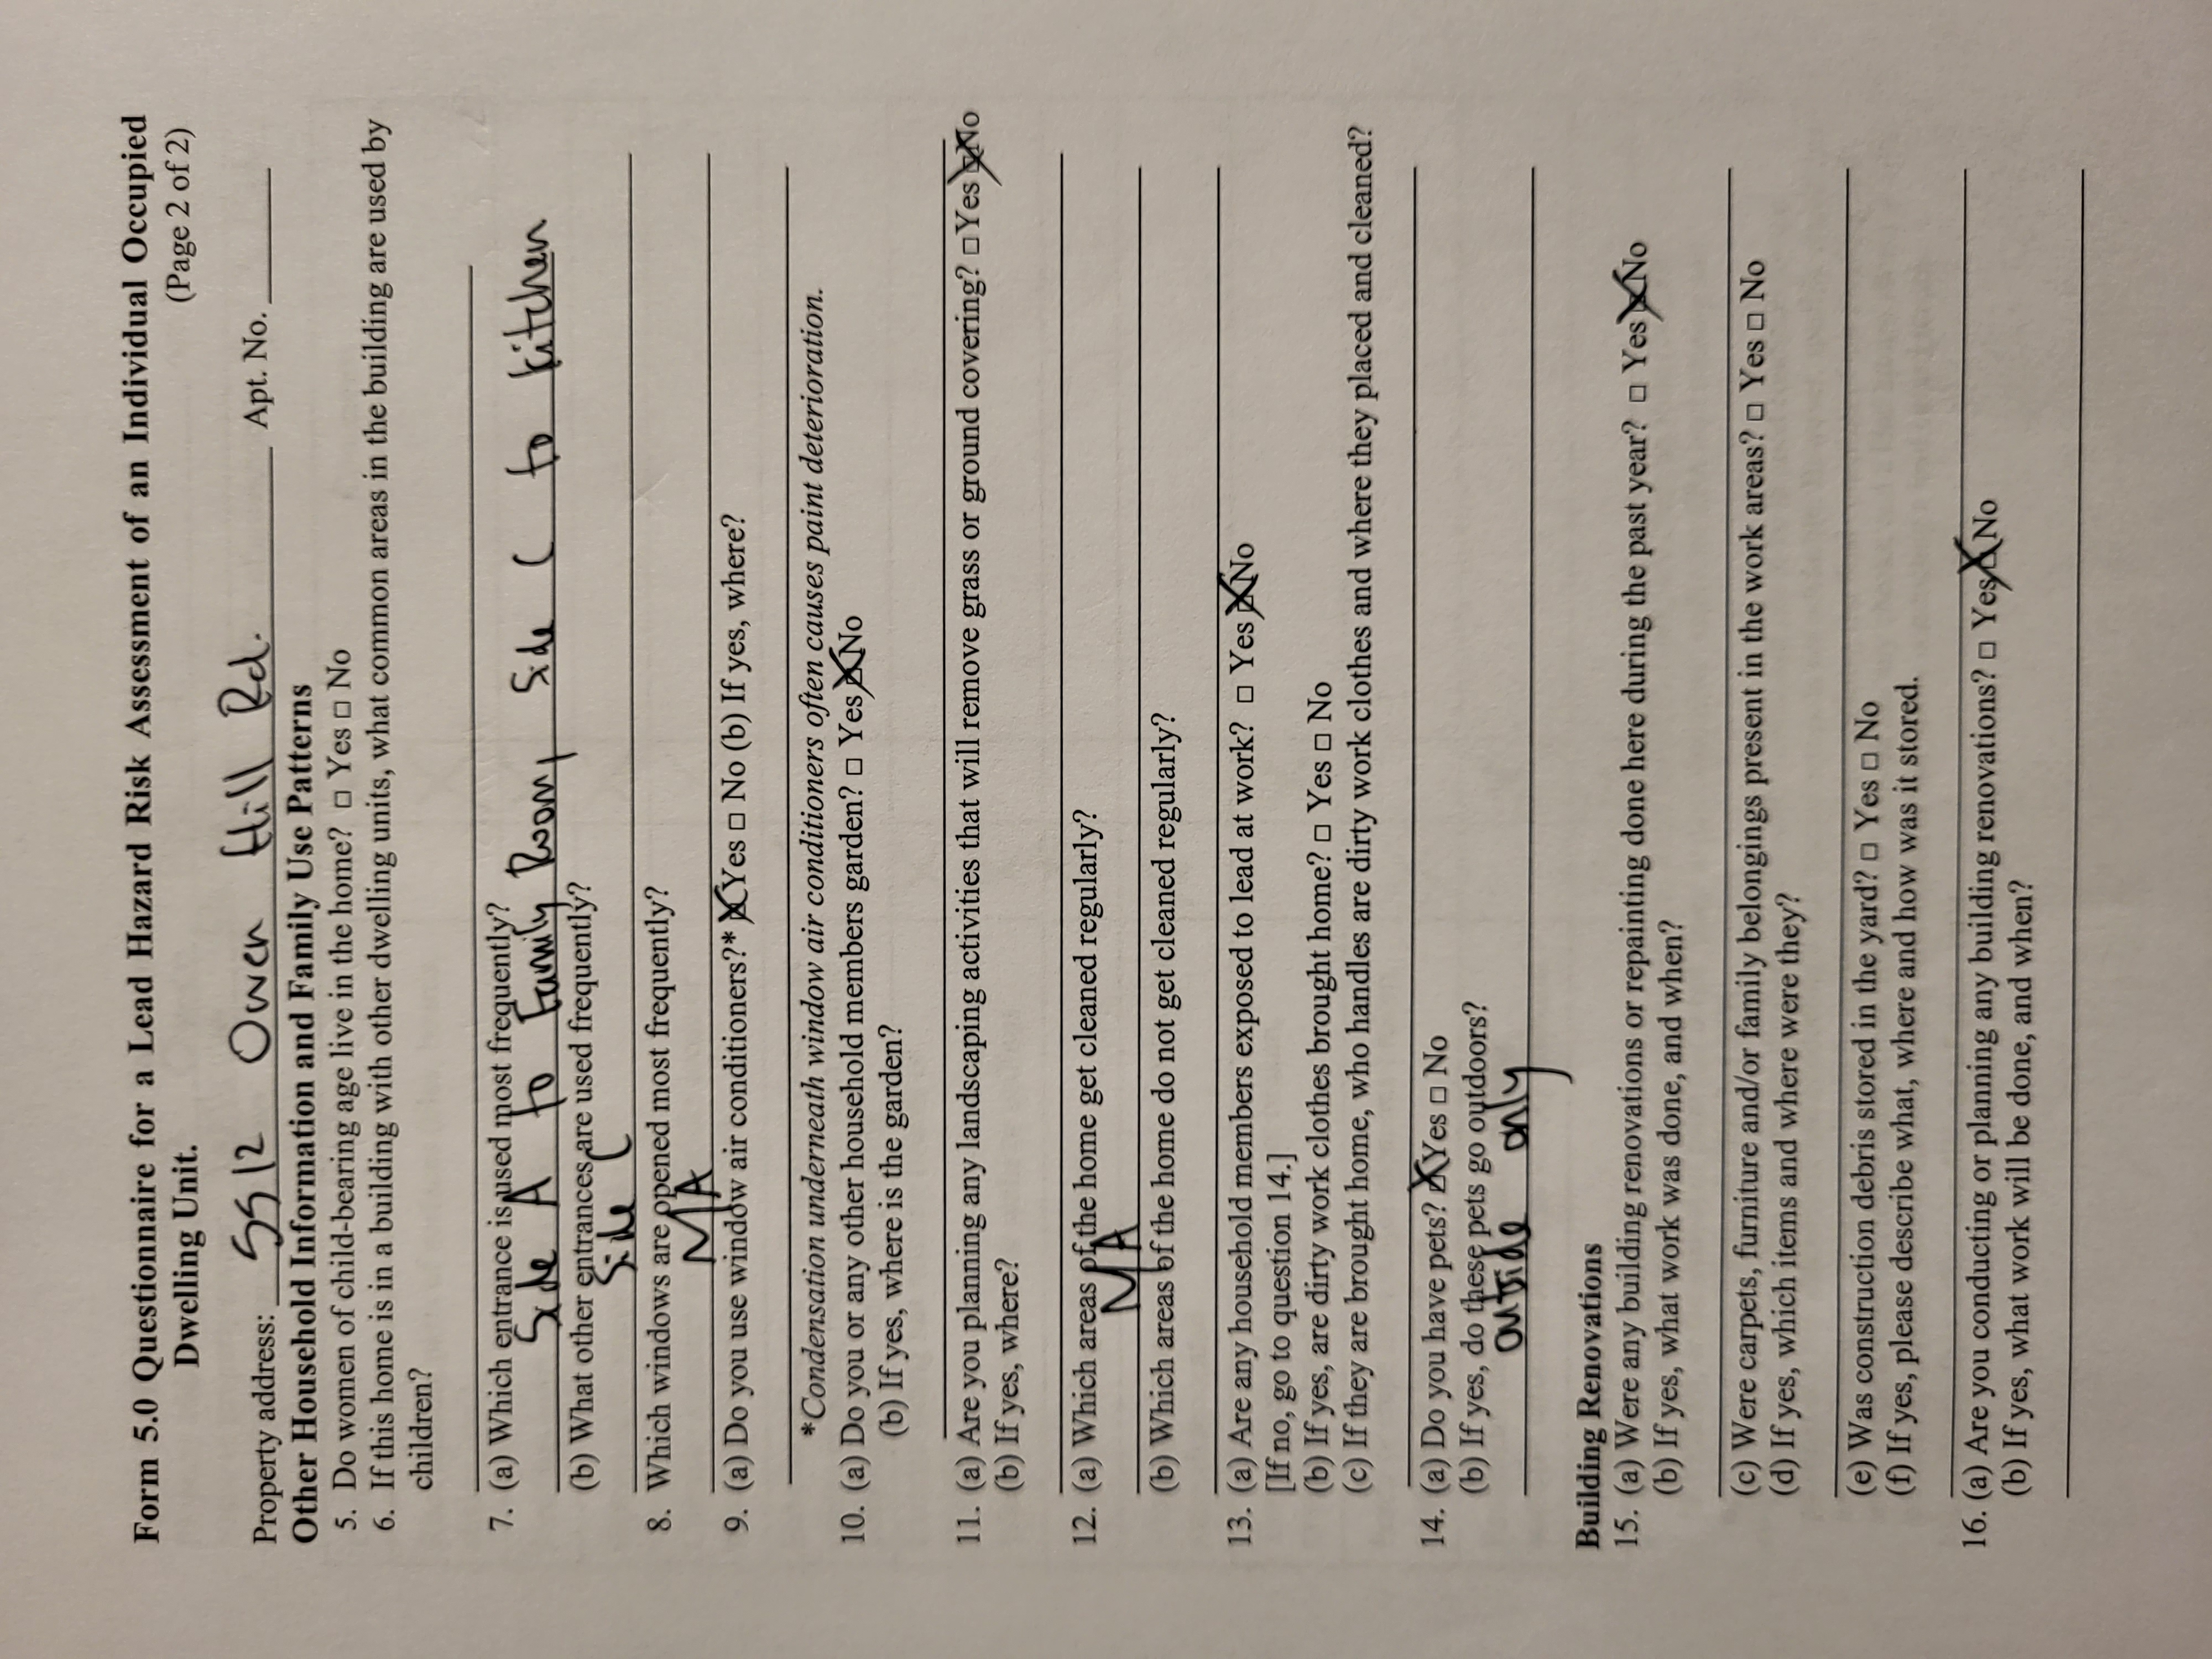 Form 5.0 Questionnaire for a Lead Hazard Risk Assessment of an Individual Occupied
Dwelling Unit. (Page 2 of 2)
Property address: 5512 Owen Hill Rd. Apt. No.
Other Household Information and Family Use Patterns
5. Do women of child-bearing age live in the home? □ Yes □ No
6. If this home is in a building with other dwelling units, what common areas in the building are used by
children?
7. (a) Which entrance is used most frequently?
Side A to Family Room, Side C to kitchen
(b) What other entrances are used frequently?
Side C
8. Which windows are opened most frequently?
N/A
9. (a) Do you use window air conditioners?* ☒ Yes □ No (b) If yes, where?
*Condensation underneath window air conditioners often causes paint deterioration.
10. (a) Do you or any other household members garden? □ Yes ☒ No
(b) If yes, where is the garden?
11. (a) Are you planning any landscaping activities that will remove grass or ground covering? □ Yes ☒ No
(b) If yes, where?
12. (a) Which areas of the home get cleaned regularly?
N/A
(b) Which areas of the home do not get cleaned regularly?
13. (a) Are any household members exposed to lead at work? □ Yes ☒ No
[If no, go to question 14.]
(b) If yes, are dirty work clothes brought home? □ Yes □ No
(c) If they are brought home, who handles are dirty work clothes and where they placed and cleaned?
14. (a) Do you have pets? ☒ Yes □ No
(b) If yes, do these pets go outdoors?
outside only
Building Renovations
15. (a) Were any building renovations or repainting done here during the past year? □ Yes ☒ No
(b) If yes, what work was done, and when?
(c) Were carpets, furniture and/or family belongings present in the work areas? □ Yes □ No
(d) If yes, which items and where were they?
(e) Was construction debris stored in the yard? □ Yes □ No
(f) If yes, please describe what, where and how was it stored.
16. (a) Are you conducting or planning any building renovations? □ Yes ☒ No
(b) If yes, what work will be done, and when?